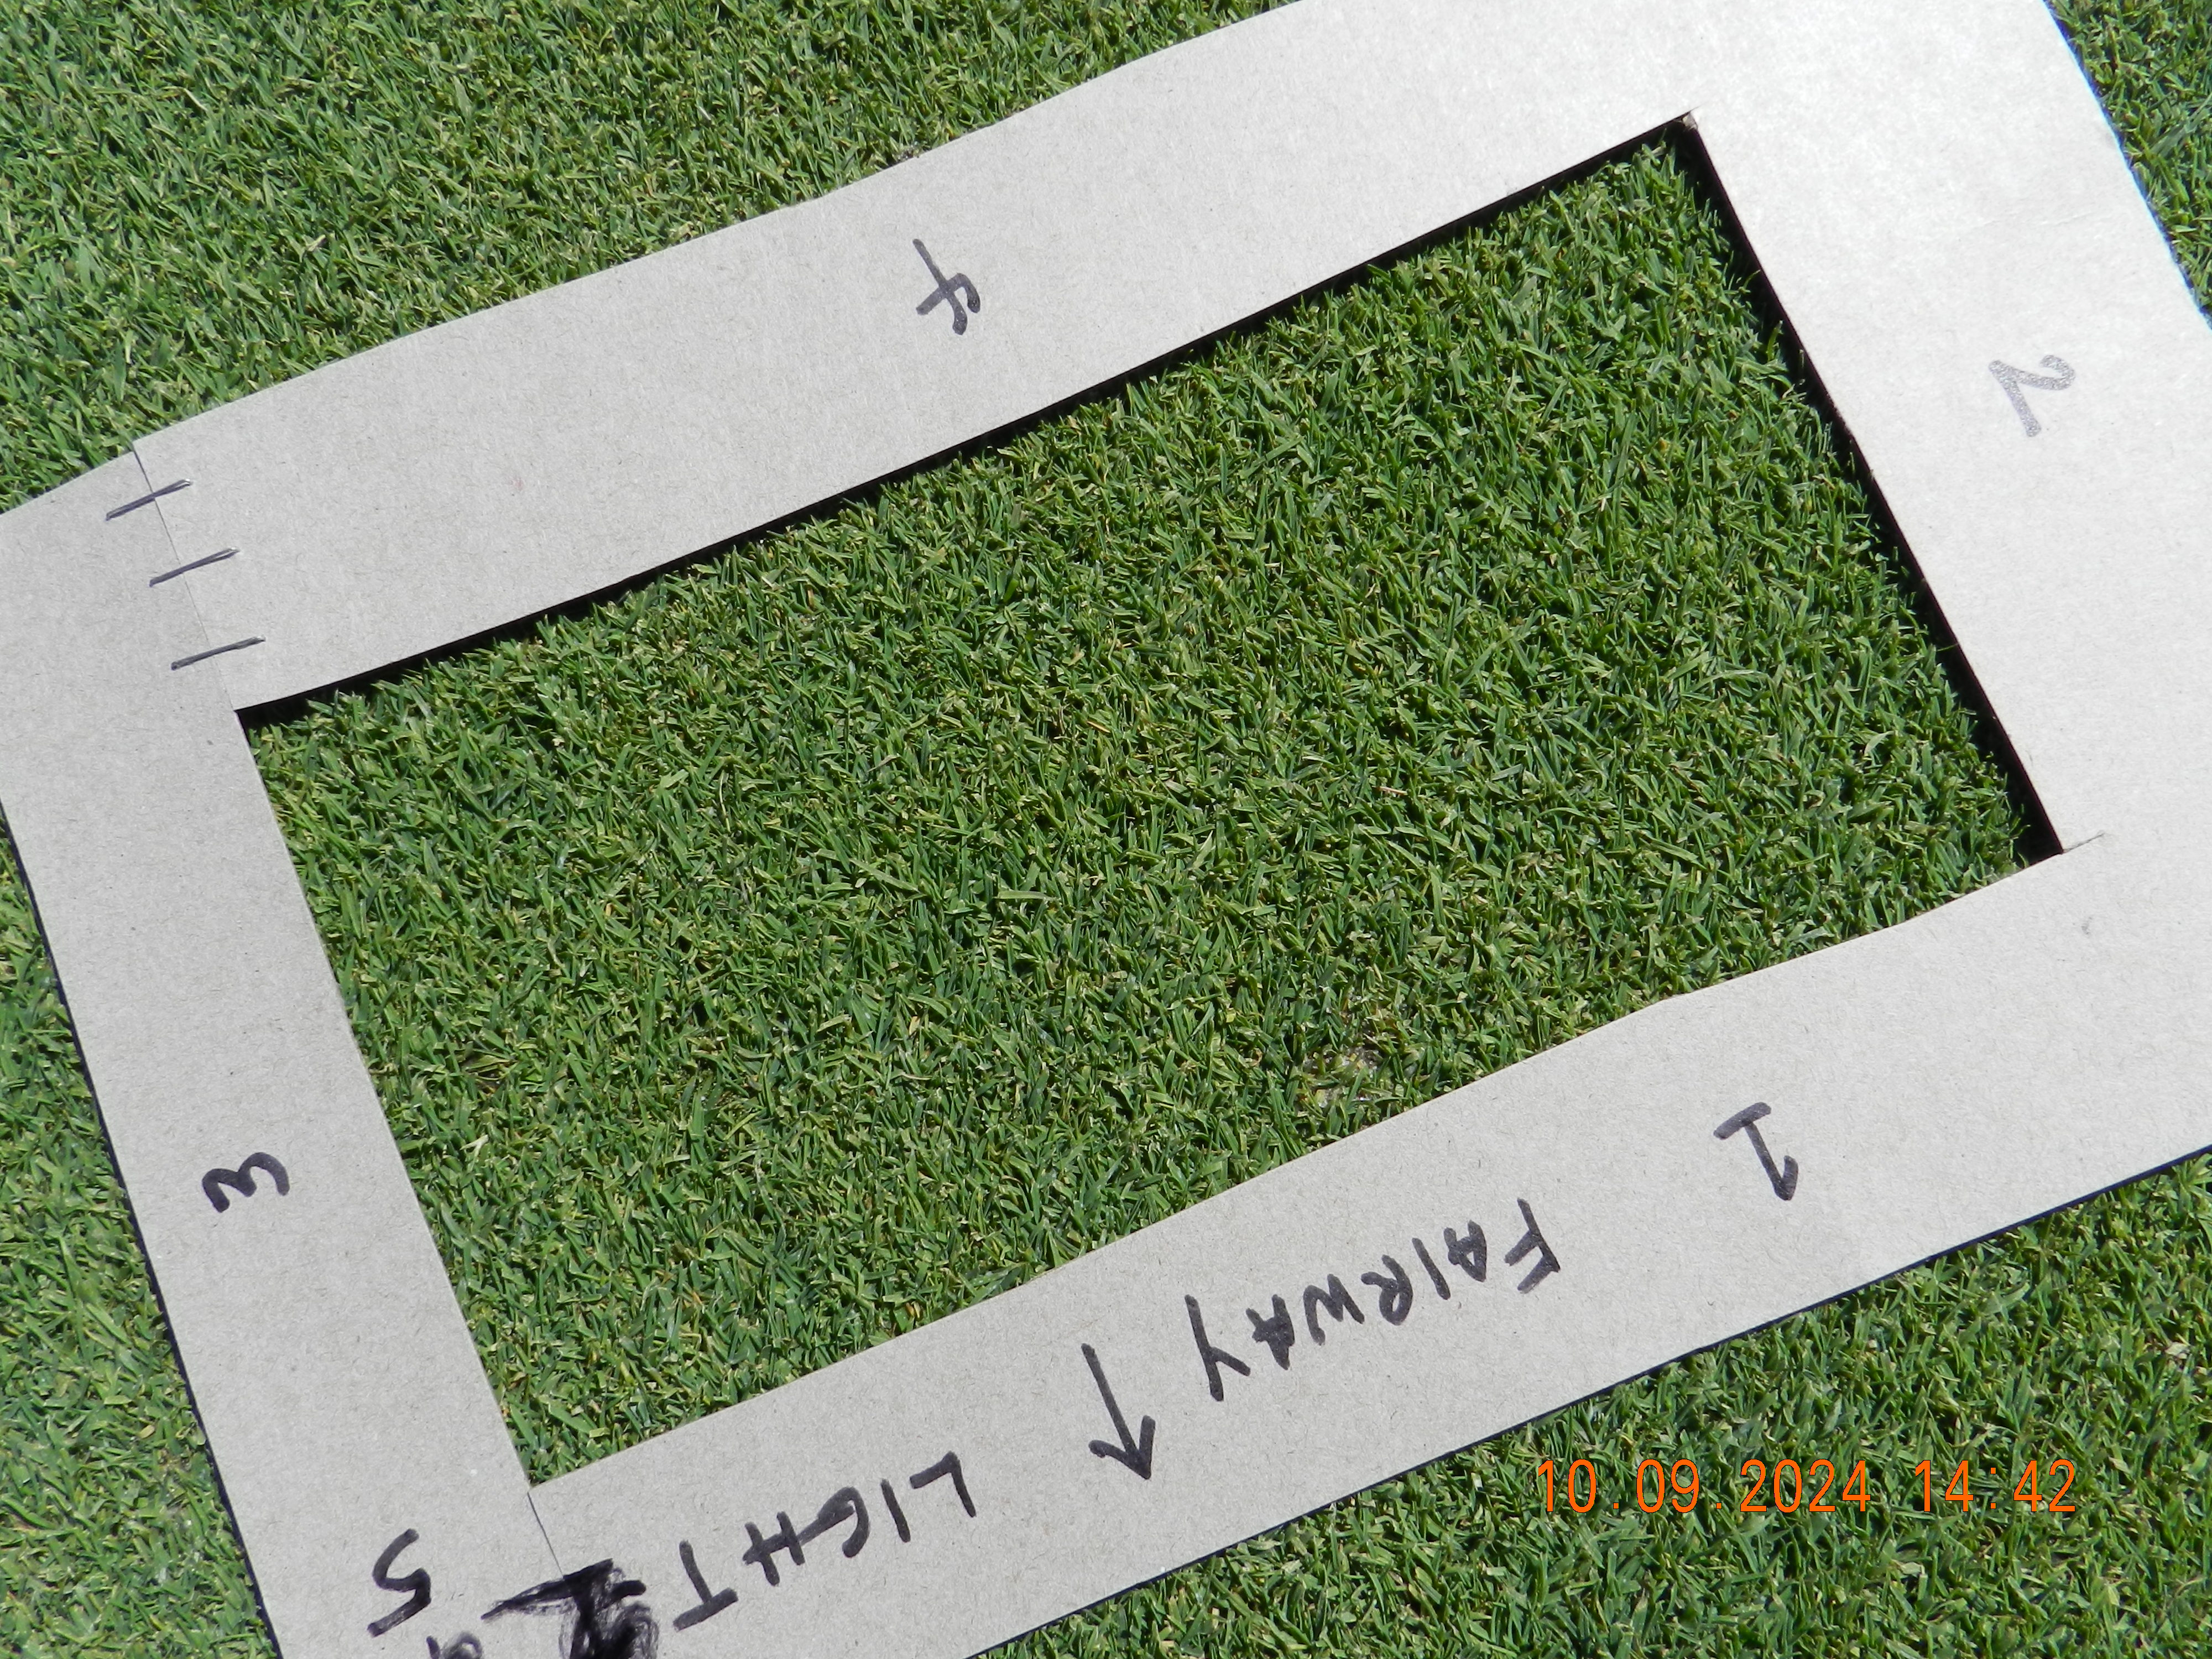 4
2
3
1
FAIRWAY
LIGHT
5
10.09.2024 14:42